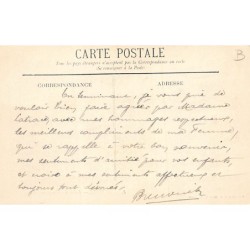 3
CARTE POSTALE
Tous les pays étrangers n'acceptent pas la Correspondance au recto
(Se renseigner à la Poste)
CORRESPONDANCE ADRESSE
En terminant, je vous prie de
vouloir bien faire agréer par Madame
avec mes hommages respectueux,
les meilleurs compliments de ma femme
qui se rappelle à votre bon souvenir,
mes sentiments d'amitié pour vos enfants,
et croire à mes sentiments affectueux et
toujours dévoués.